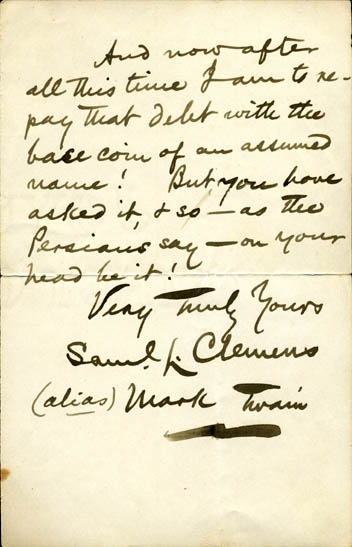 And now after
all this time I am to re-
pay that debt with the
base coin of an assumed
name! But, you have
asked it, & so — as the
Persians, say — on your
head be it!
Very Truly Yours
Saml. L. Clemens
(alias) Mark Twain